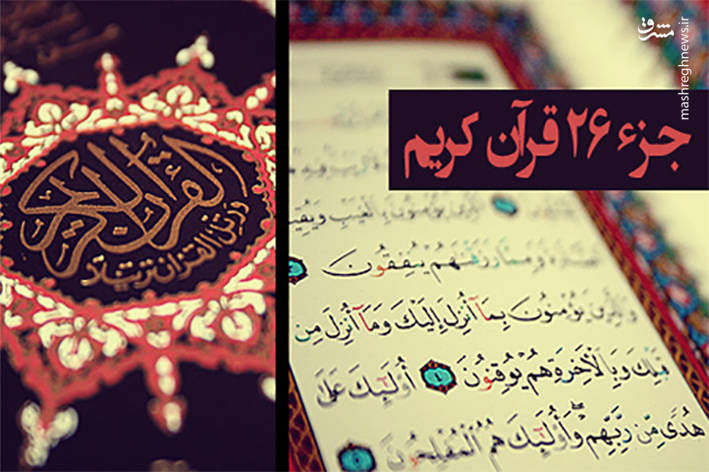 مشرق
mashreghnews.ir
جزء ۲۶ قرآن کریم
القرآن الكريم
ورتل القرآن ترتيلا
بالغيب ويقيمون
ومما رزقنهم ينفقون
والذين يؤمنون بما أنزل إليك وما أنزل من
قبلك وبالآخرة هم يوقنون ٤ أولئك على
هدى من ربهم وأولئك هم المفلحون ٥